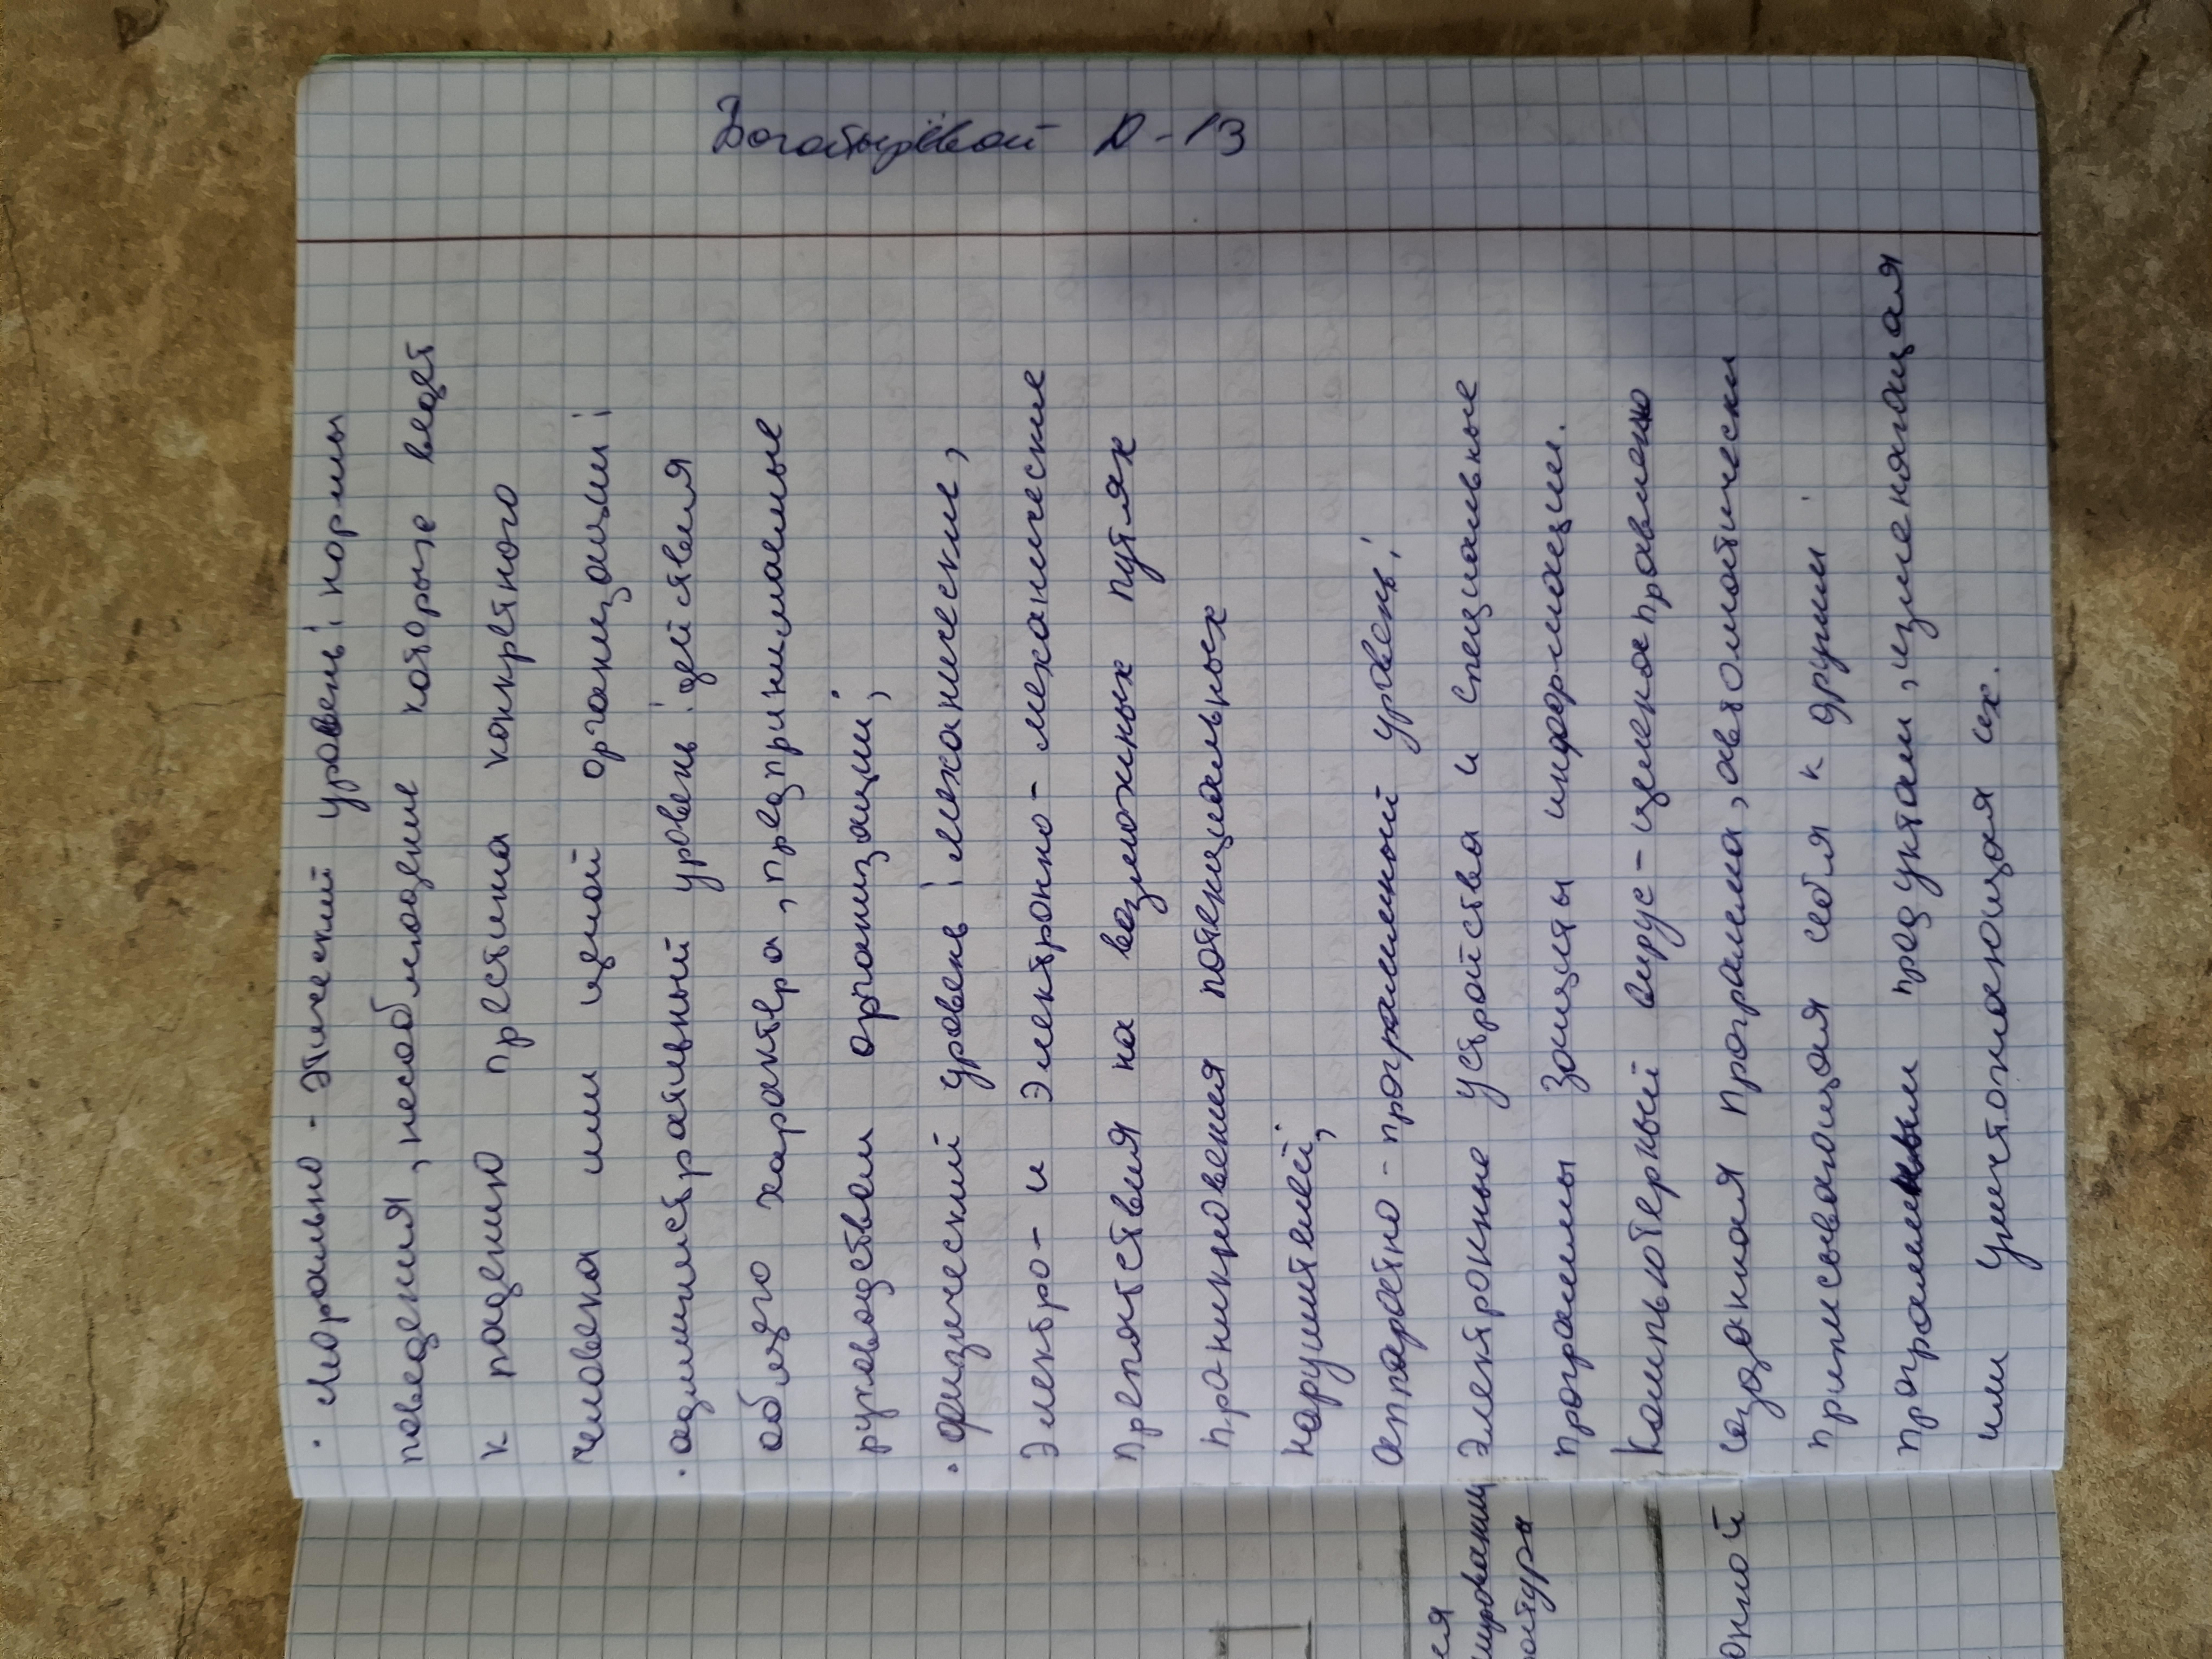 Богатырёвой Д-13
• Морально-этический уровень: нормы
поведения, несоблюдение которые ведет
к падению престижа конкретного
человека или целой организации;
• административный уровень: действия
общего характера, предпринимаемые
руководством организации;
• физический уровень: механические,
электро- и электронно-механические
препятствия на возможных путях
проникновения потенциальных
нарушителей;
аппаратно-программный уровень:
электронные устройства и специальные
программы защиты информации.
Компьютерный вирус-целенаправленно
созданная программа, автоматически
приписывающая себя к другим
программным продуктам, изменяющая
или уничтожающая их.